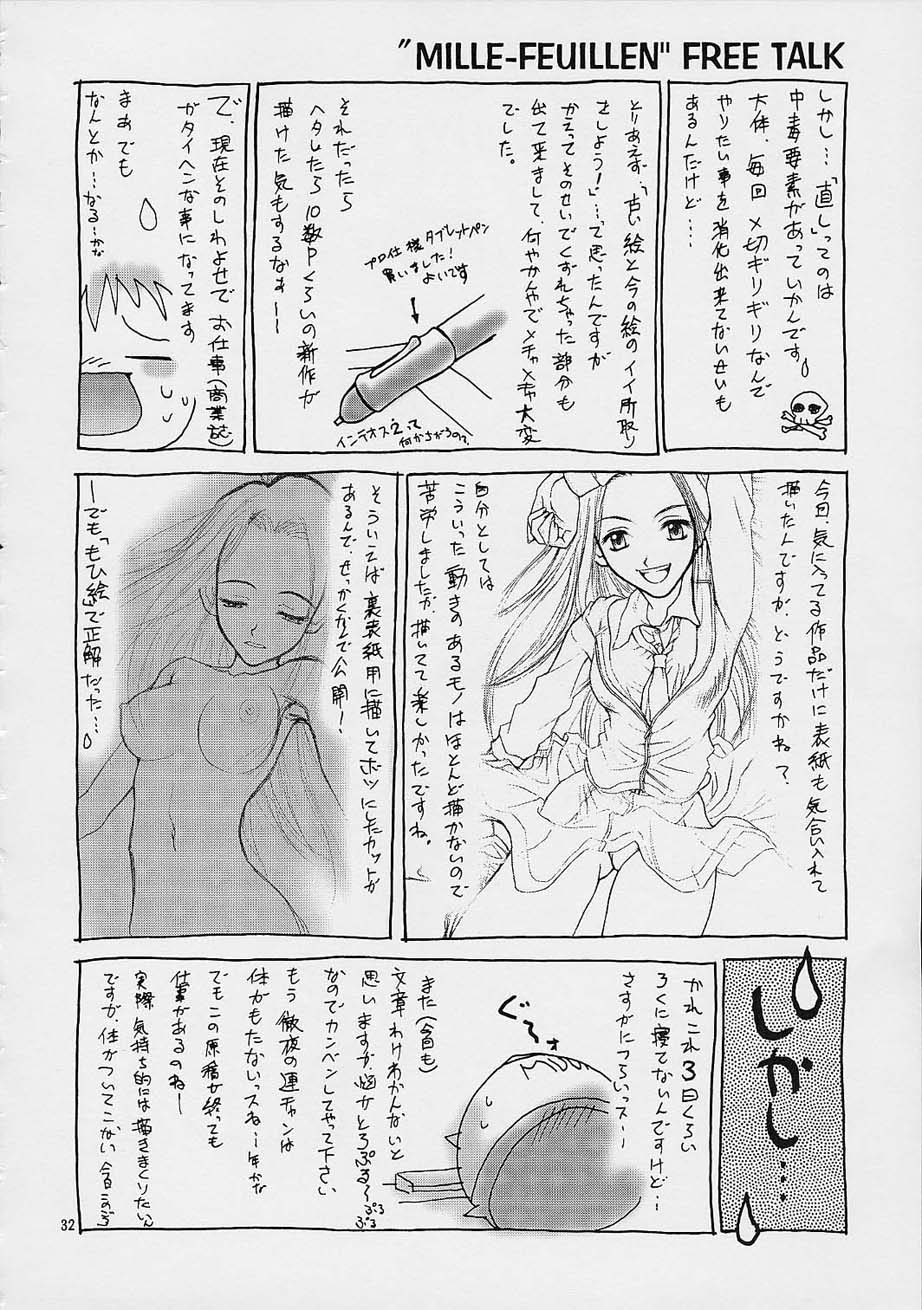 "MILLE-FEUILLEN" FREE TALK
しかし…「直し」ってのは
中毒要素があっていかんです。
大体、毎回〆切ギリギリなんで
やりたい事を消化出来てないせいも
あるんだけど…
とりあえず、「古い絵と今の絵のイイ所取り
さしよう！」…って思ったんですが
かえってそのせいでくずれちゃった部分も
出て来まして、何やかんやでメチャメチャ大変
でした。
それだったら
ヘタしたら10数Pくらいの新作が
描けた気もするなぁーー
プロ仕様タブレットペン
買いました！
よいです
インテオス2って
何かさがうので、
で、現在そのしわよせでお仕事(商業誌)
がタイヘンな事になってます
まぁでも
なんとか…なる…かな
今回、気に入ってる作品だけに表紙も気合い入れて
描いたんですが、どうですかね？
自分としては
こういった動きのあるモノはほとんど描かないので
苦労しましたが、描いてて楽しかったですね。
そういえば裏表紙用に描いてボツにしたカットが
あるんで、せっかくなので公開！
ーでも「もひ絵」で正解だった…
しかし…
かれこれ3日くらい
ろくに寝てないんですけど…
さすがにつらいっスー
ぐぅ
また(今回も)
文章わけわかんないと
思いますが、悩みとろぷる〜ぷるぷる
なのでカンベンしてやって下さい
もう徹夜の連チャンは
体がもたないっスね〜年かな
でもこの原稿が終っても
仕事があるのねー
実際気持ち的には描きまくりたいん
ですが、体がついてこない今日このごろ
32